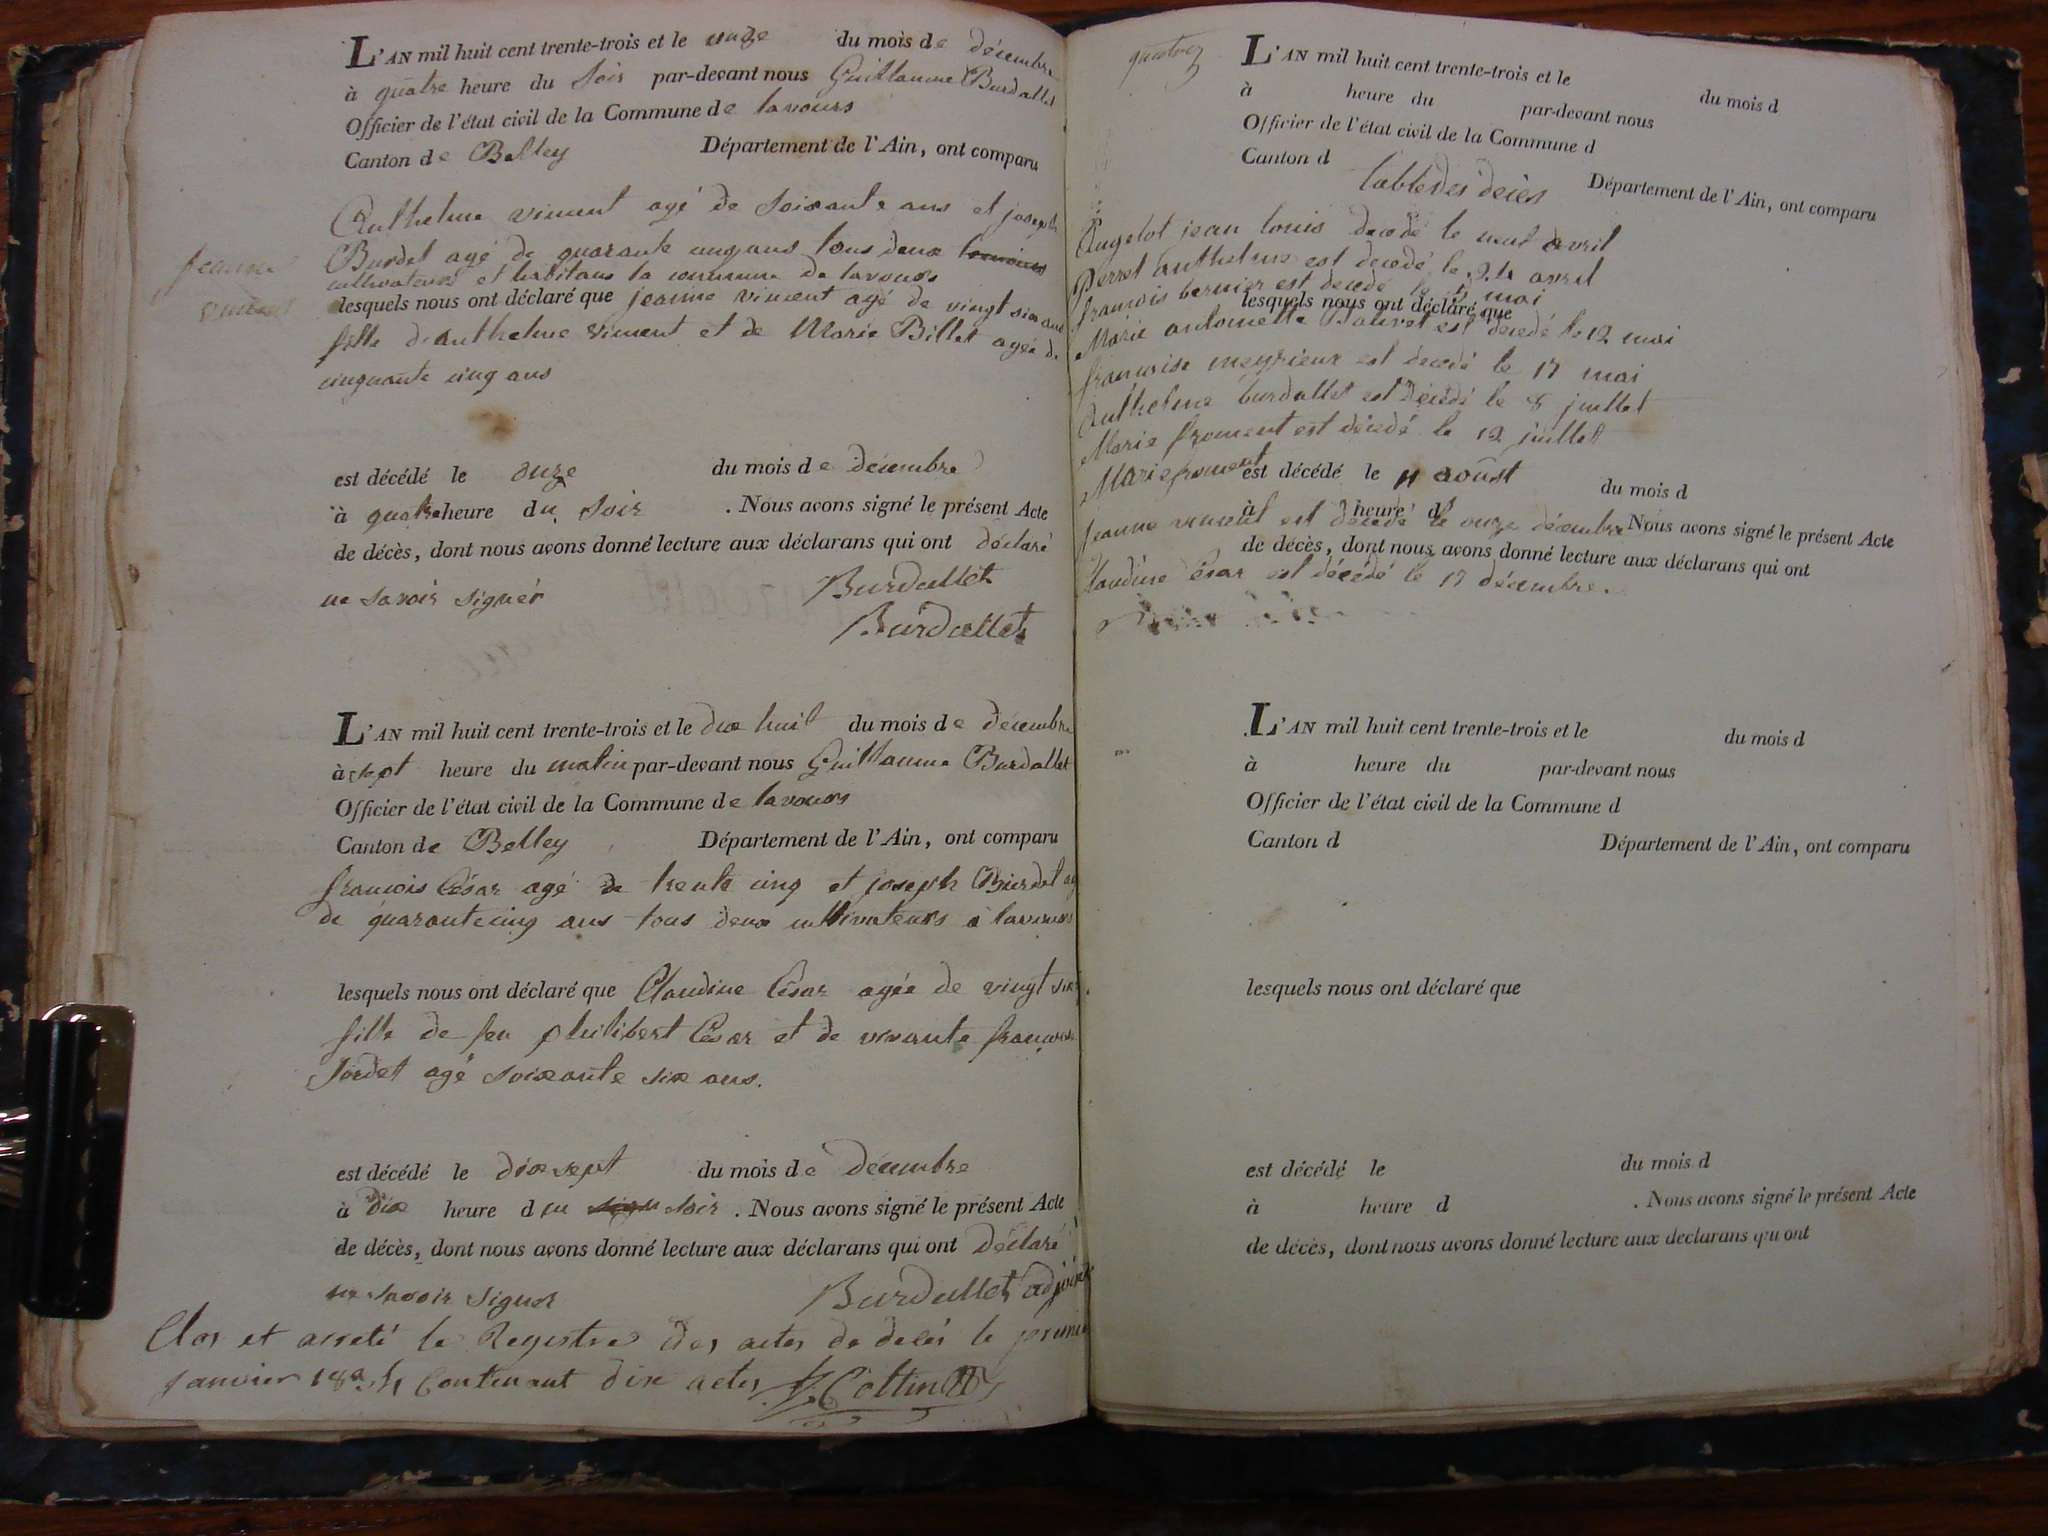 L'AN mil huit cent trente-trois et le onze du mois de décembre
à quatre heure du soir par-devant nous Guillaume Burdallet
Officier de l'état civil de la Commune de lavours
Canton de Belley Département de l'Ain, ont comparu
Anthelme viment agé de soixante ans et joseph
Burdet agé de quarante cinq ans tous deux
cultivateurs et habitans la commune de lavours
jeanne
viment
lesquels nous ont déclaré que jeanne viment agé de vingt six ans
fille d'anthelme viment et de Marie Billet agée de
cinquante cinq ans
est décédé le onze du mois de décembre
à quatre heure du soir . Nous avons signé le présent Acte
de décès, dont nous avons donné lecture aux déclarans qui ont déclaré
ne savoir signér Burdallet
Burdallet
L'AN mil huit cent trente-trois et le dix huit du mois de décembre
à sept heure du matin par-devant nous Guillaume Burdallet
Officier de l'état civil de la Commune de lavours
Canton de Belley Département de l'Ain, ont comparu
françois César agé de trente cinq et joseph Burdet ag
de quarante cinq ans tous deux cultivateurs à lavours
lesquels nous ont déclaré que Claudine César agée de vingt six
fille de feu philibert César et de vivante françoise
Jordet agé soixante six ans.
est décédé le dix sept du mois de décembre
à dix heure du soir . Nous avons signé le présent Acte
de décès, dont nous avons donné lecture aux déclarans qui ont déclaré
ne savoir signer Burdallet adjoint
Clos et arreté le Registre des actes de decès le premier
janvier 1834 contenant dix actes Cottin
L'AN mil huit cent trente-trois et le du mois d
à heure du par-devant nous
Officier de l'état civil de la Commune d
Canton d Département de l'Ain, ont comparu
table des décès
Augelot jean louis décédé le neuf avril
Perret anthelme est décédé le 24 avril
françois bernier est décédé le 5 mai
lesquels nous ont déclaré que
Marie antoinette est décédé le 12 mai
françoise meyrieux est décédé le 17 mai
Anthelme burdallet est décédé le 8 juillet
Marie froment est décédé le 12 juillet
Marie froment est décédé le 11 aoûst du mois d
à heure d . Nous avons signé le présent Acte
jeanne viment est décédé le onze décembre
de décès, dont nous avons donné lecture aux déclarans qui ont
Claudine César est décédé le 17 décembre.
L'AN mil huit cent trente-trois et le du mois d
à heure du par-devant nous
Officier de l'état civil de la Commune d
Canton d Département de l'Ain, ont comparu
lesquels nous ont déclaré que
est décédé le du mois d
à heure d . Nous avons signé le présent Acte
de décès, dont nous avons donné lecture aux déclarans qui ont